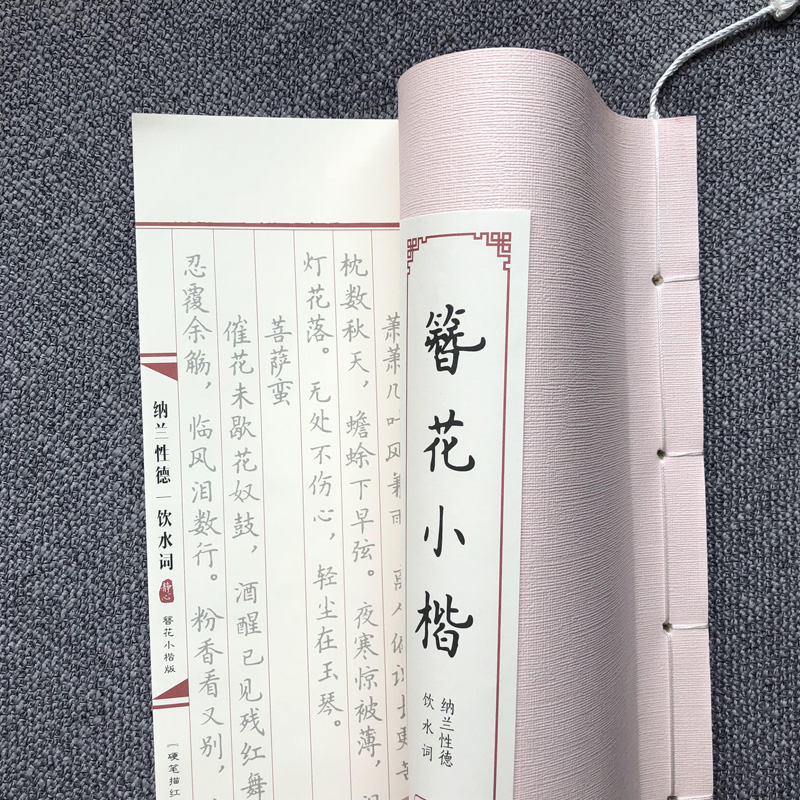 簪花小楷
纳兰性德
饮水词
萧萧几叶风兼雨
枕数秋天，蟾蜍下早弦。夜寒惊被薄，
灯花落。无处不伤心，轻尘在玉琴。
菩萨蛮
催花未歇花奴鼓，酒醒已见残红舞
忍覆余觞，临风泪数行。粉香看又别，
纳兰性德|饮水词
静心
簪花小楷版
[硬笔描红